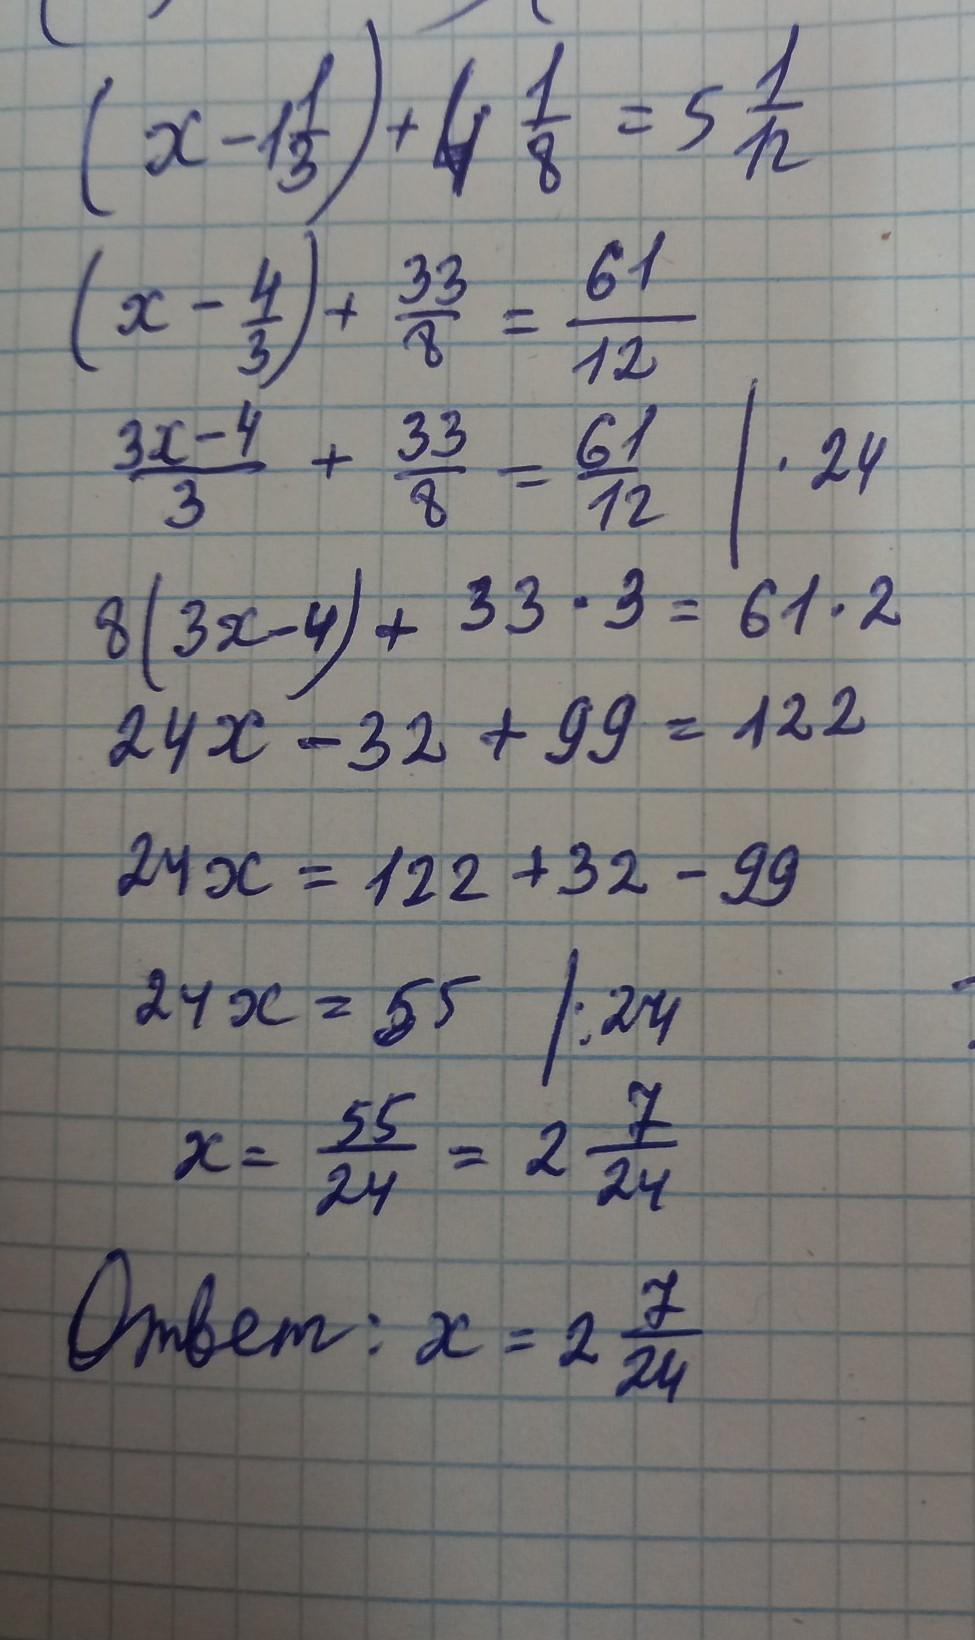 (x - 1 1/3) + 4 1/8 = 5 1/12
(x - 4/3) + 33/8 = 61/12
(3x - 4)/3 + 33/8 = 61/12 | · 24
8(3x - 4) + 33 · 3 = 61 · 2
24x - 32 + 99 = 122
24x = 122 + 32 - 99
24x = 55 | : 24
x = 55/24 = 2 7/24
Ответ: x = 2 7/24